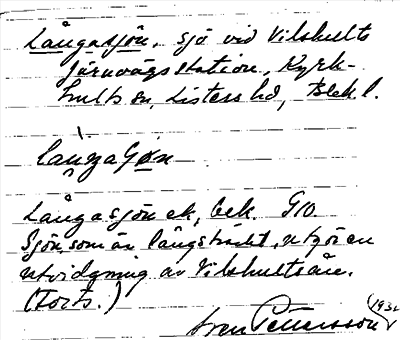 Långasjön, sjö vid Vilshults
järnvägsstation, Kyrk-
hults sn, Listers hd, Blek l.
Långasjön ek, bek. G10.
Sjön, som är långsträckt, utgör en
utvidgning av Vilshultsån.
(Forts.)
Sven Pettersson